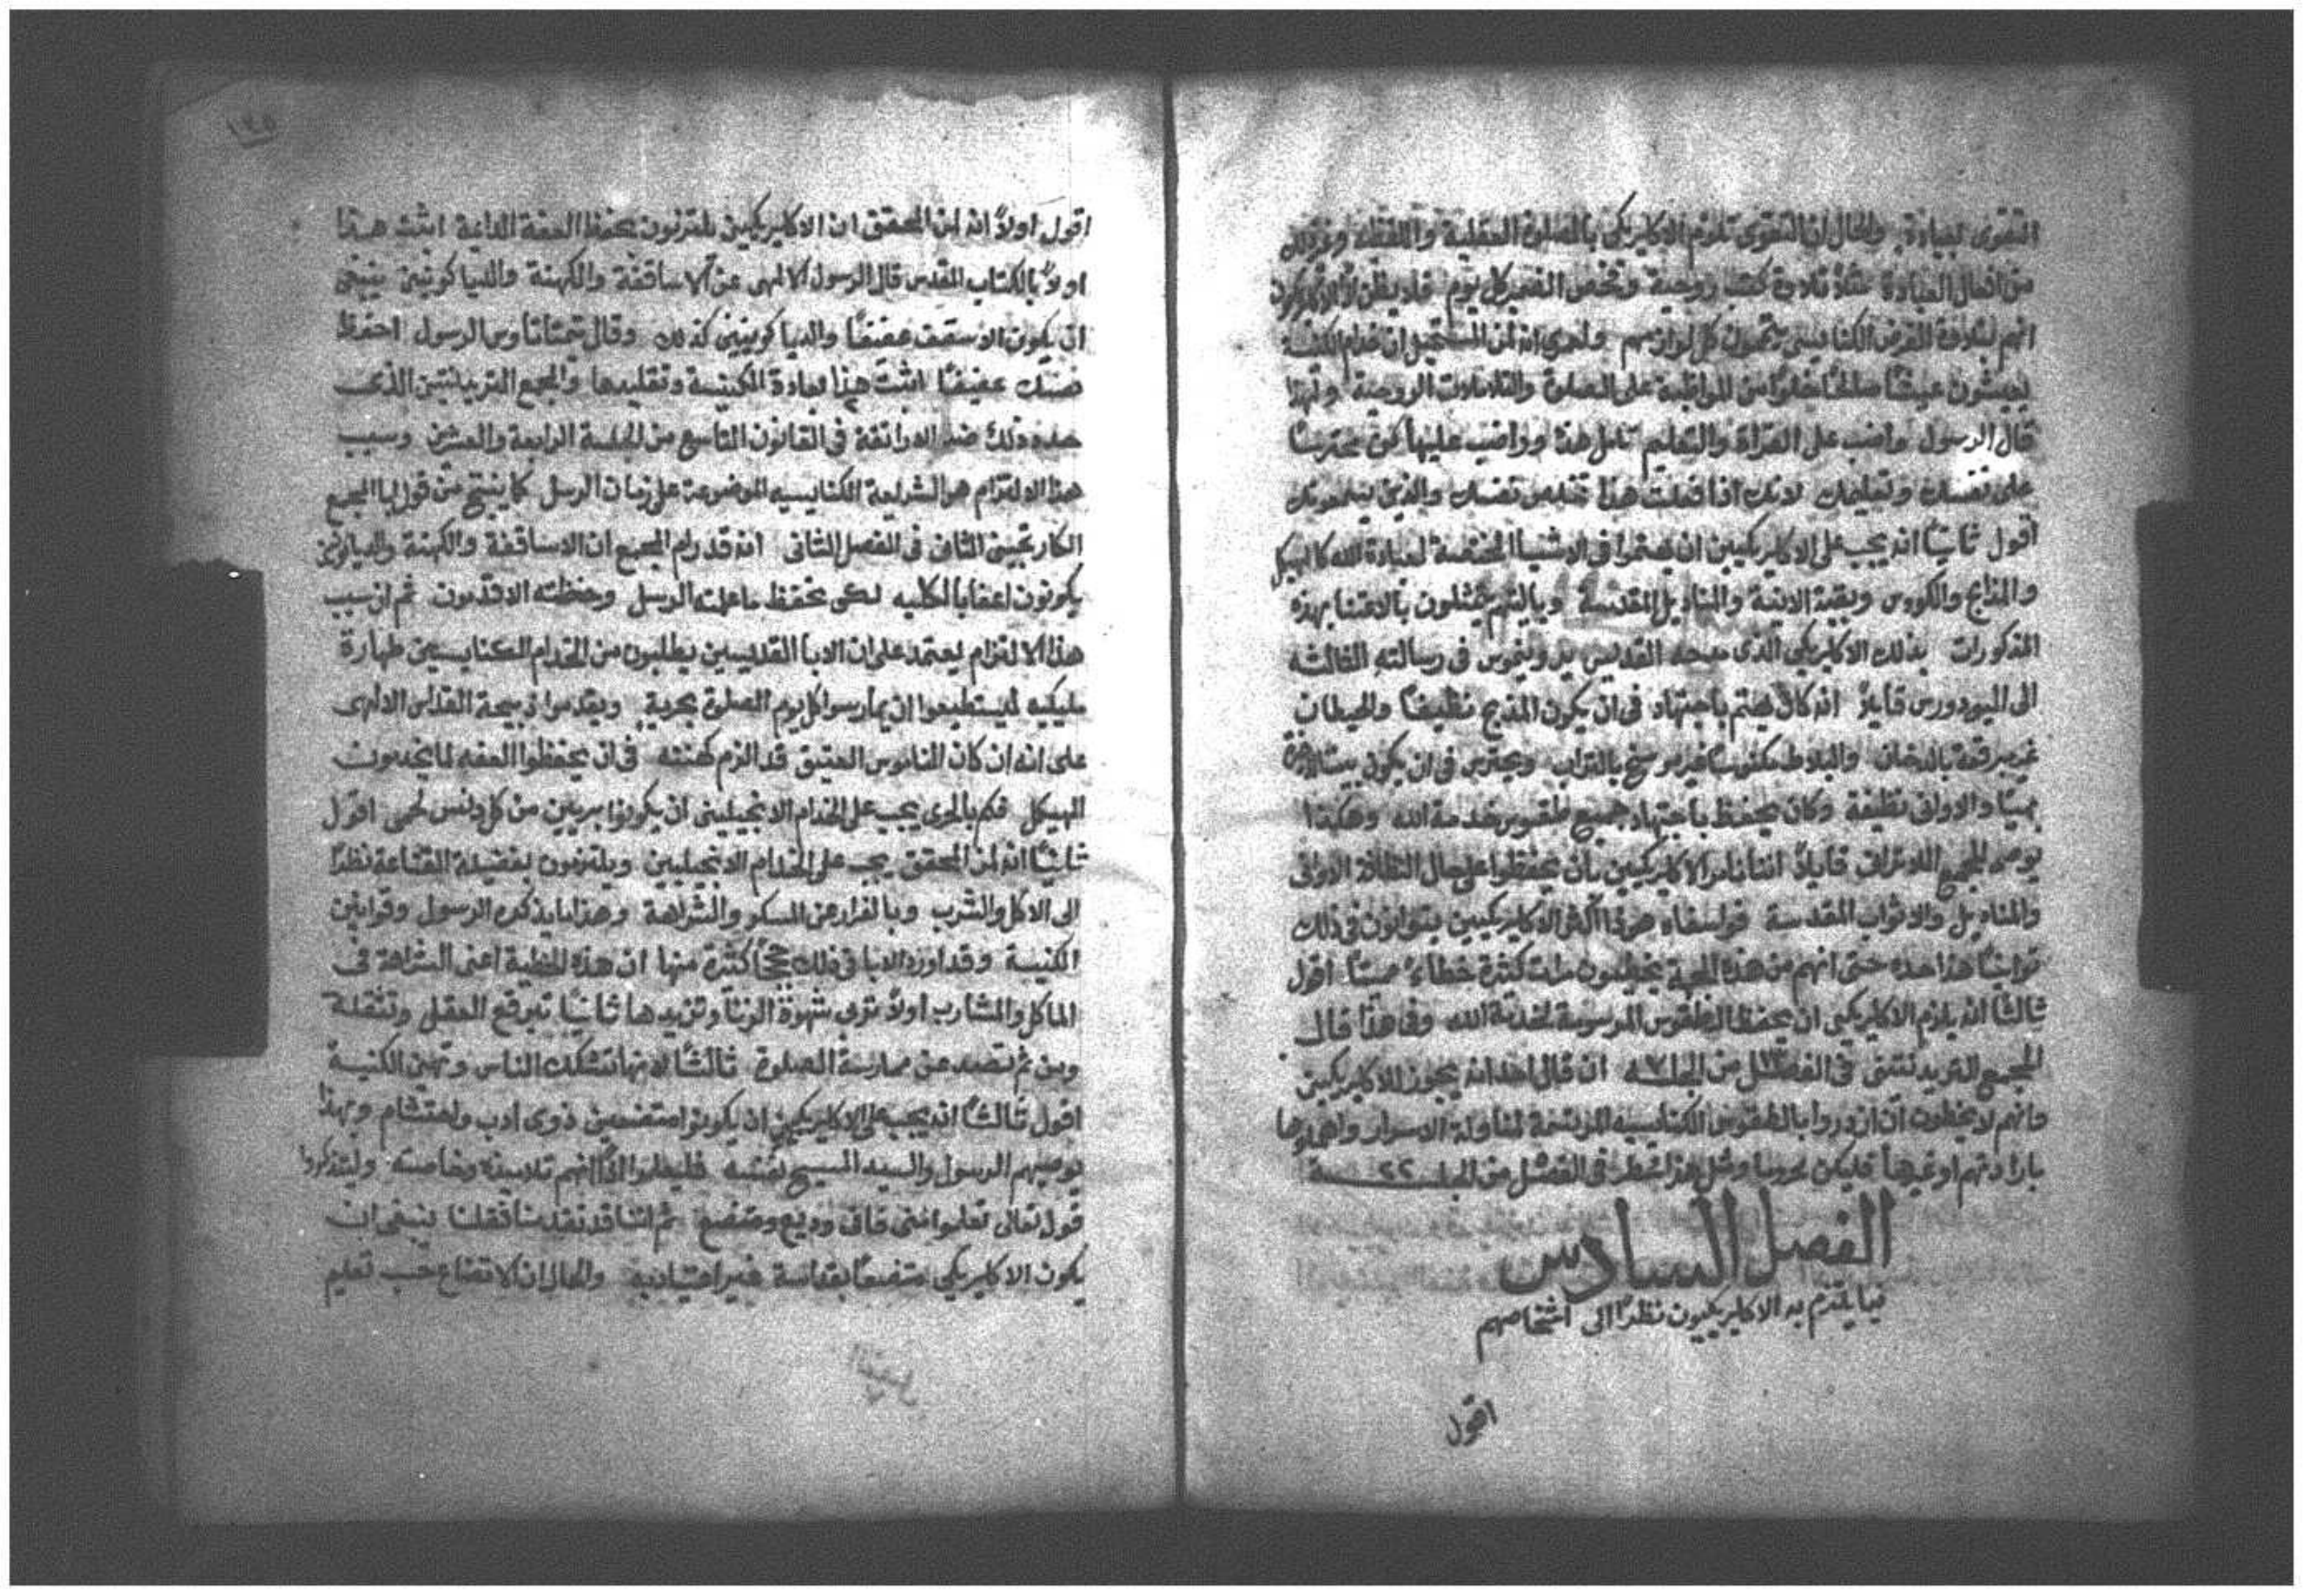 التقوى لعبادة. والحال ان التقوى تلزم الاكليريكي بالصلوة العقلية واللفظيه
من افعال العبادة مثلاً تلاوة كتب روحية وفحص الضمير كل يوم فلا يظن الاكليريكون
انهم بتلاوة الفرض الكنايسي يتممون كل لوازمهم ولعمري انه لمن المستحيل ان خدام الكنيسة
يعيشون عيشاً صالحاً خلواً من المواظبة على الصلوة والتلاوات الروحية ولهذا
قال الرسول واضب على القراة والتعليم تامل هذا وواضب عليها كن محترساً
على نفسك وتعليمك لانك اذا فعلت هذا تخلص نفسك والذين يسمعونك
اقول ثانياً انه يجب على الاكليريكيين ان يهتموا في الاشيا المختصة لعبادة الله كالهيكل
والمذابح والكووس وبقية الانية والمناديل المقدسة وياليتهم يتمثلون بالاعتنا بهذه
المذكورات بذلك الاكليريكي الذي مدحه القديس يرونيموس في رسالته الثالثه
الى اليودورس قايلاً انه كان يهتم باجتهاد في ان يكون المذبح نظيفاً والحيطان
غير مرقعة بالدخان والبلاط مكنوساً غير موسخ بالتراب ويحترس في ان يكون بيت
بهياً والاواني نظيفة وكان يحفظ باجتهاد جميع طقوس خدمة الله وهكذا
يوصي المجمع اللاتراني قايلاً اننا نامر الاكليريكيين بان يحفظوا على حال النظافة الاواني
والمناديل والاثواب المقدسة فواسفاه هوذا اكثر الاكليريكيين يتوانون في ذلك
توانياً هذا حده حتى انهم من هذه الجهة يخطيون مرات كثيرة خطاء مميتاً اقول
ثالثاً انه يلزم الاكليريكي ان يحفظ الطقوس المرسومة لخدمة الله وفي هذا قال
المجمع التريدنتيني في الفصل ١٣ من الجلسه ٧ ان قال احد انه يجوز للاكليريكيين
وانهم لا يخطون ان ازدروا بالطقوس الكنايسيه المرتسمة لمناولة الاسرار واهملوها
بارادتهم او غيرها فليكن محروما ومثل هذا سطر في الفصل من الجلسة ٢٢
الفصل السادس
فيما يلتزم به الاكليريكيون نظراً الى اشخاصهم
اقول
١٢٥
اقول اولاً انه لمن المحقق ان الاكليريكيين يلتزمون بحفظ العفة الدايمة اثبت هذا
اولاً بالكتاب المقدس قال الرسول الالهي عن الاساقفة والكهنة والدياكونيين ينبغي
ان يكون الاسقف عفيفاً والدياكونيين كذلك وقال تيمتاتاوس الرسول احفظ
نفسك عفيفاً اثبت هذا لعادة الكنيسة وتقليدها والمجمع التريدنتيني الذي
حدد ذلك ضد الاراتقة في القانون التاسع من الجلسة الرابعة والعشرين وسبب
هذا الالتزام هو الشريعة الكنايسيه الموضوعة على زمان الرسل كما ينتج من قول ابا المجمع
الكارتجيني الثاني في الفصل الثاني انه قد رام المجمع ان الاساقفة والكهنة والدياكونيين
يكونون اعفا بالكليه لكي نحفظ ما علمته الرسل وحفظته الاقدمون ثم ان سبب
هذا الالتزام يعتمد على ان الابا القديسين يطلبون من الخدام الكنايسيين طهارة
مليكيه ليستطيعوا ان يمارسوا كل يوم الصلوة بحرية ويقدموا ذبيحة القداس الالهي
على انه ان كان الناموس العتيق قد الزم كهنته في ان يحفظوا العفه لما يخدمون
الهيكل فكم بالحري يجب على الخدام الانجيليين ان يكونوا بريين من كل دنس لحمي اقول
ثانياً انه لمن المحقق يجب على الخدام الانجيليين ويلتزمون بفضيلة القناعة نظراً
الى الاكل والشرب وبالفرار عن السكر والشراهة وهذا ما يذكره الرسول وقوانين
الكنيسة وقد اورد الابا في ذلك حججاً كثيرة منها ان هذه الخطية اعني الشراهة في
الماكل والمشارب اولاً تربي شهوة الزنا وتزيدها ثانياً توقع العقل وتثقله
ومن ثم تصده عن ممارسة الصلوة ثالثاً لانها تشكك الناس وتهين الكنيسة
اقول ثالثاً انه يجب على الاكليريكيين ان يكونوا متضعين ذوي ادب واحتشام وبهذا
يوصيهم الرسول والسيد المسيح نفسه فليعلموا اذاً انهم تلاميذه وخاصته وليتذكروا
قول تعالى تعلموا مني فاني وديع ومتضع ثم اننا قد تقدمنا فقلنا ينبغي ان
يكون الاكليريكي متضعاً بقداسة غير اعتياديه والحال ان الاتضاع حسب تعليم